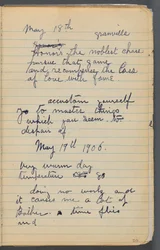 May 18th
granville
Honour the noblest chase
pursue that game
And recompense the loss
of love with fame
accustom yourself
to master things
which you seem to
despair of
May 19th 1906.
very warm day
temperature 80
doing no work and
it causes me a lot of
bother. time flies
and